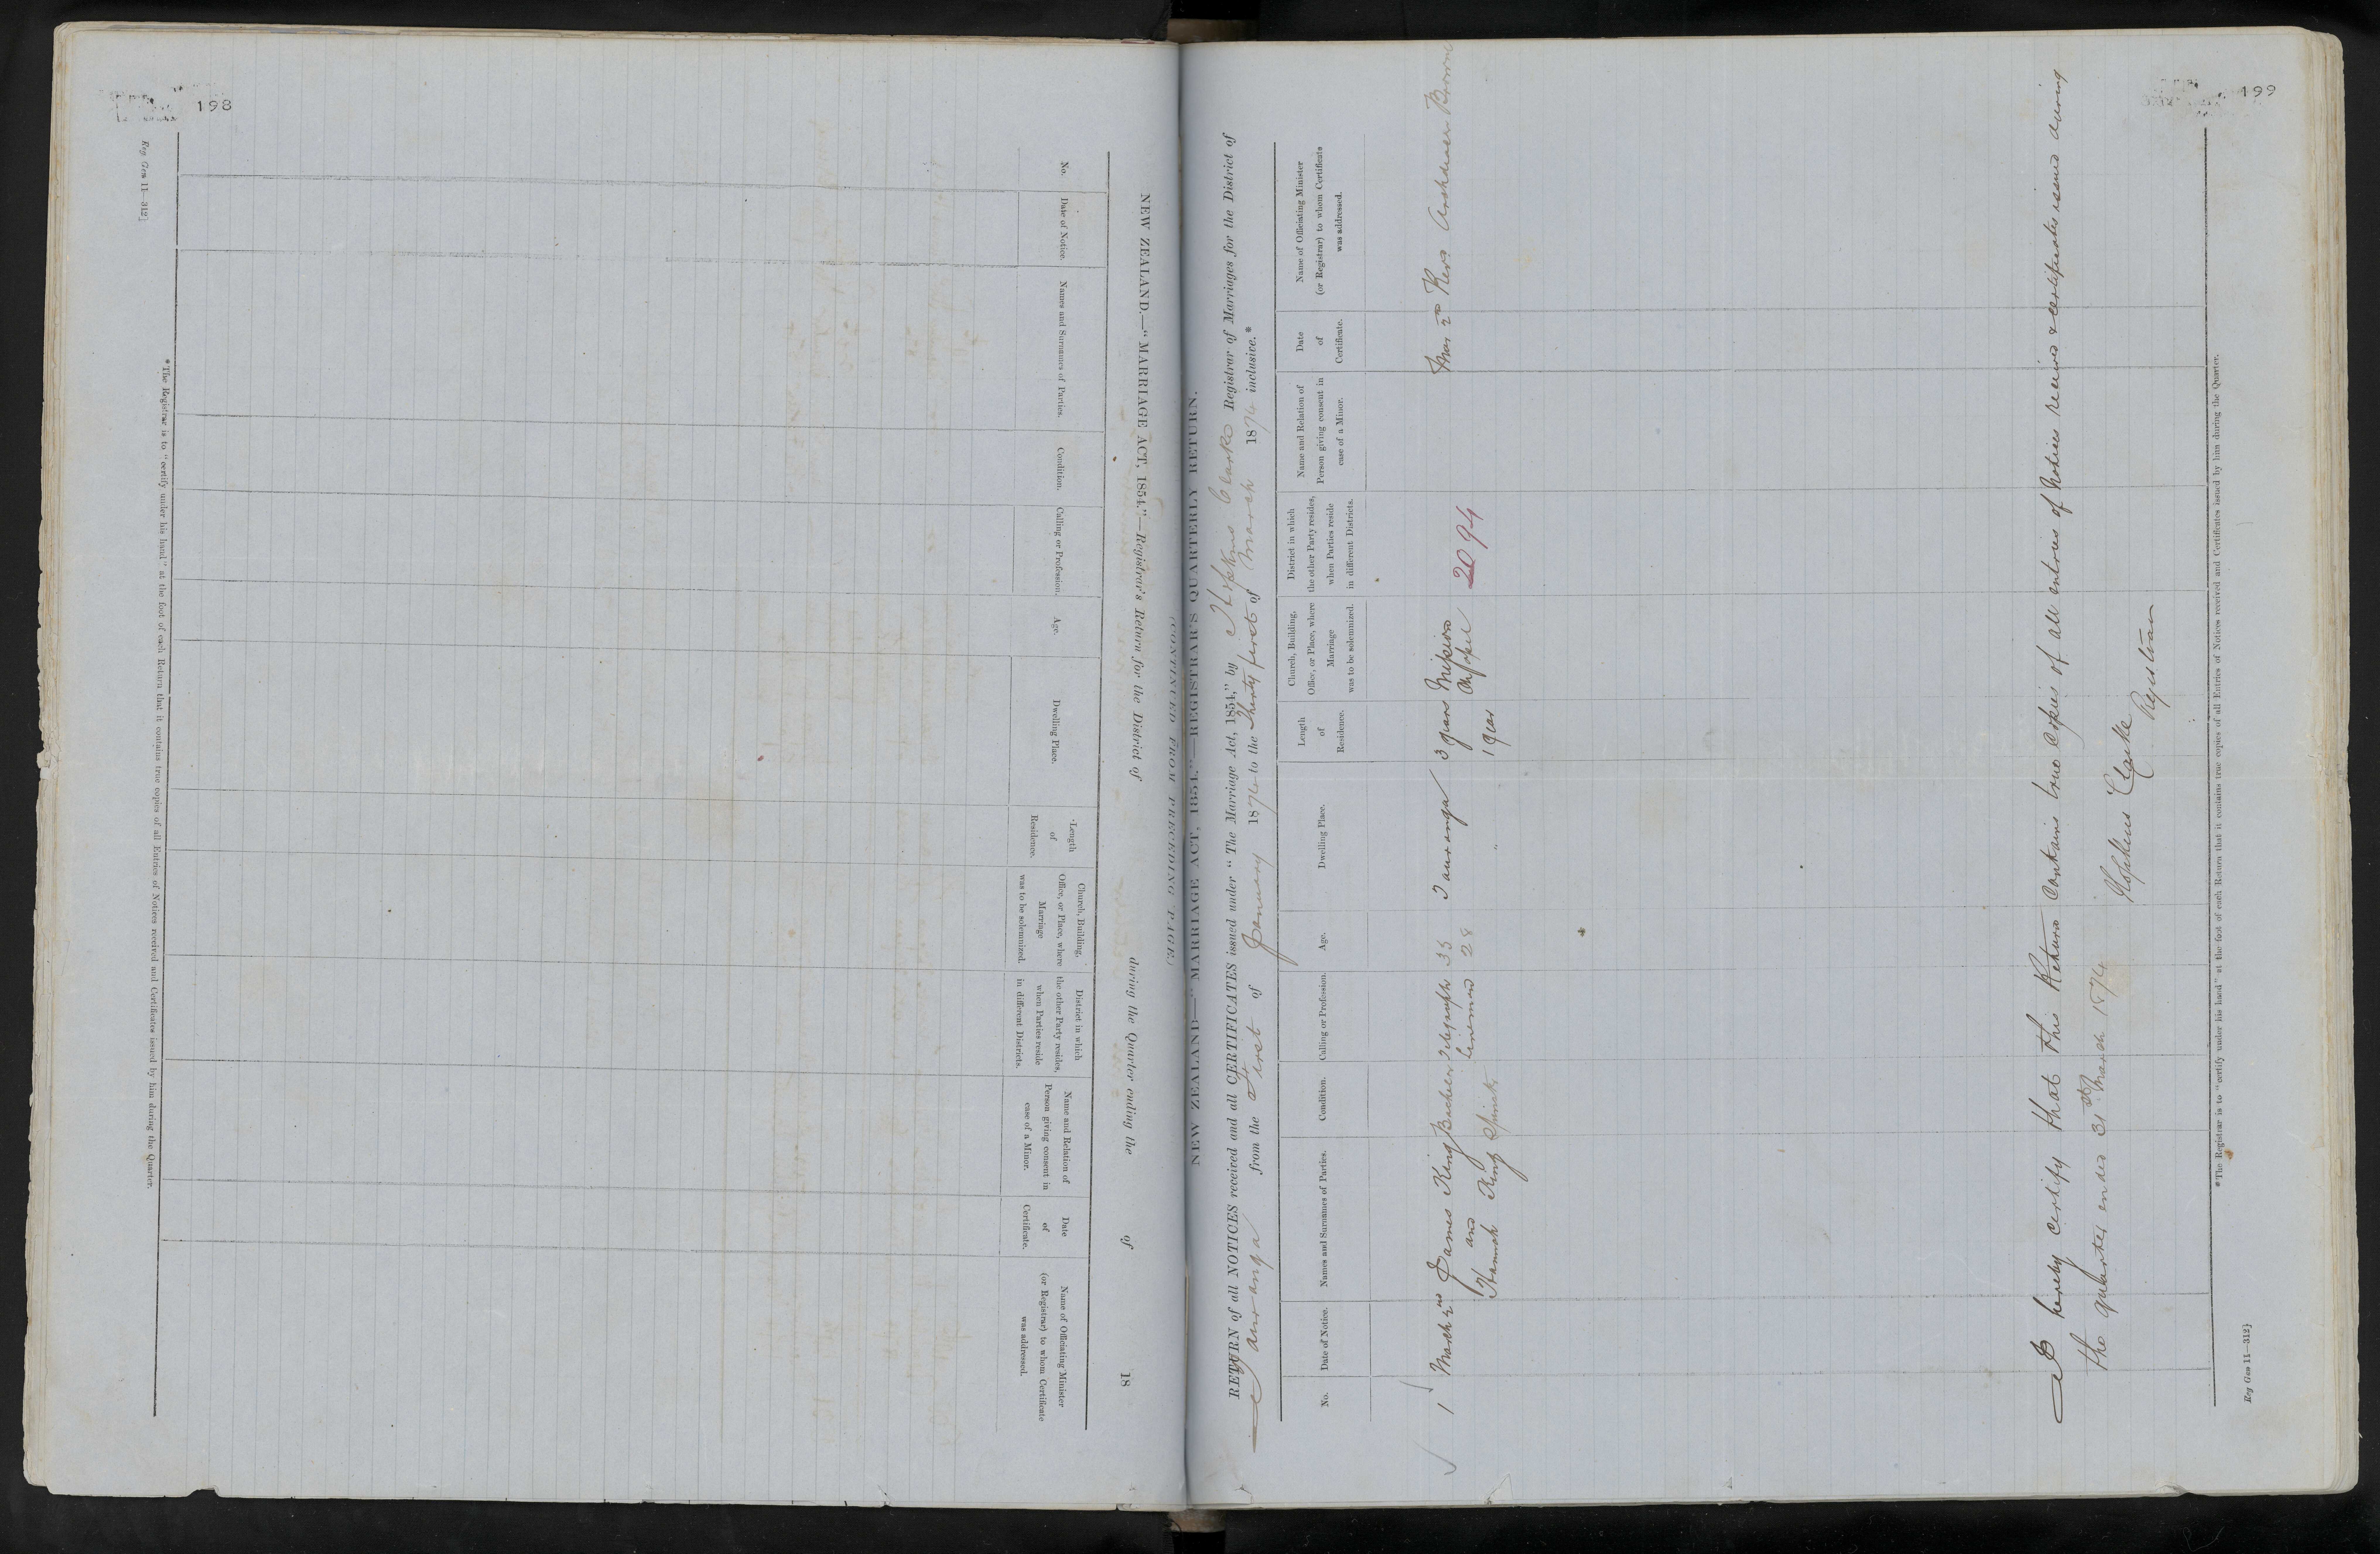 198
Reg Gen 11—312]
NEW ZEALAND.—"MARRIAGE ACT, 1854."—Registrar's Return for the District of during the Quarter ending the of 18
No.
Date of Notice.
Names and Surnames of Parties.
Condition.
Calling or Profession.
Age.
Dwelling Place.
Length
of
Residence.
Church, Building,
Office, or Place, where
Marriage
was to be solemnized.
District in which
the other Party resides,
when Parties reside
in different Districts.
Name and Relation of
Person giving consent in
case of a Minor.
Date
of
Certificate.
Name of Officiating Minister
(or Registrar) to whom Certificate
was addressed.
*The Registrar is to "certify under his hand" at the foot of each Return that it contains true copies of all Entries of Notices received and Certificates issued by him during the Quarter.
199
(CONTINUED FROM PRECEDING PAGE.)
NEW ZEALAND—"MARRIAGE ACT, 1854."—REGISTRAR'S QUARTERLY RETURN.
RETURN of all NOTICES received and all CERTIFICATES issued under "The Marriage Act, 1854," by Hopkins Clarke Registrar of Marriages for the District of
Tauranga from the First of January 1874 to the Thirty first of March 1874 inclusive.*
No.
Date of Notice.
Names and Surnames of Parties.
Condition.
Calling or Profession.
Age.
Dwelling Place.
Length
of
Residence.
Church, Building,
Office, or Place, where
Marriage
was to be solemnized.
District in which
the other Party resides,
when Parties reside
in different Districts.
Name and Relation of
Person giving consent in
case of a Minor.
Date
of
Certificate.
Name of Officiating Minister
(or Registrar) to whom Certificate
was addressed.
1 March 2nd James King Bachelor Telegraph 35 Tauranga 3 years Mission Mar 2nd Revd Archdeacon Browne
and Lineman 28 Chapel 2094
Hannah King Spinster " 1 year
I hereby certify that this Return contains true copies of all entries of Notices received & certificates issued during
the quarter ended 31st March 1874
Hopkins Clarke
Registrar
*The Registrar is to "certify under his hand" at the foot of each Return that it contains true copies of all Entries of Notices received and Certificates issued by him during the Quarter.
Reg Gen 11—312]